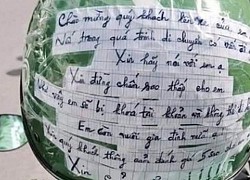 Chào mừng quý khách lên xe của em
Nếu trong quá trình di chuyển có vấn đề
Xin hãy nói với em ạ
Xin đừng chấm sao thấp cho em
vậy em sẽ bị khoá tài khoản
Em còn người gia đình nuôi ạ
quý khách thông cảm đánh giá 5 sao
Xin